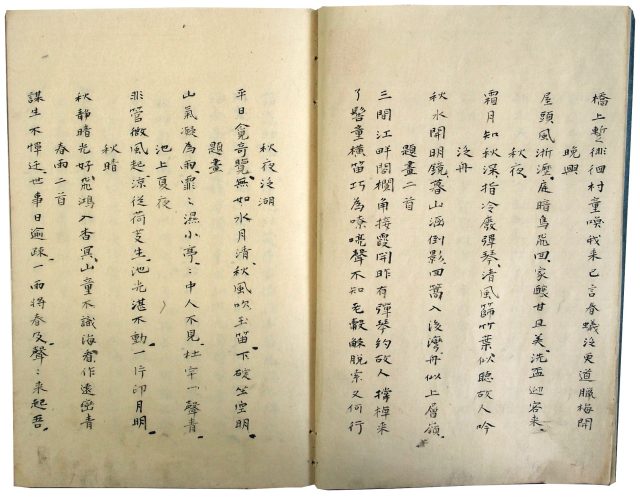 橋上暫徘徊村童嘆我来已言春蟻泛更道臘梅開
晚興
屋頭風淅瀝庭暗鳥飛回家釀甘且美洗盃迎客来
秋夜
霜月知秋深指冷廢彈琴清風篩竹葉似聴故人吟
泛舟
秋水開明鏡層山涵倒影回篙入後灣舟似上層嶺
題畫二首
三間江畔閣欄角接霞開昨有彈琴約故人擕樽来
了髻童橫笛巧為嘹喨聲不知毛觳觫脱索又何行
秋夜泛湖
平日貪奇覽無如水月清秋風吹玉笛下破坐空明
題畫
山氣凝為雨霏〻濕小亭〻中人不見杜宇一聲青
池上夏夜
非管微風起涼從荷芰生池光湛不動一片印月明
秋晴
秋靜晴光好飛鴻入杳冥山童不識海看作遠巒青
春雨二首
謀生不憚迂世事日逾疎一雨將春及聲〻来起吾